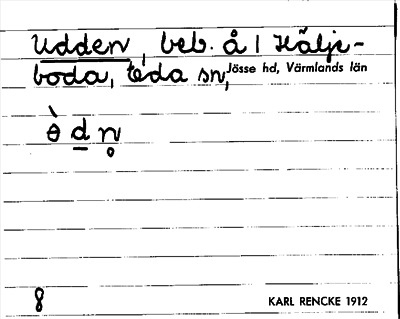 Udden, beb. å | Hälje-
boda, Eda sn, Jösse hd, Värmlands län
ɵ̀ d̲ n̥
8
KARL RENCKE 1912